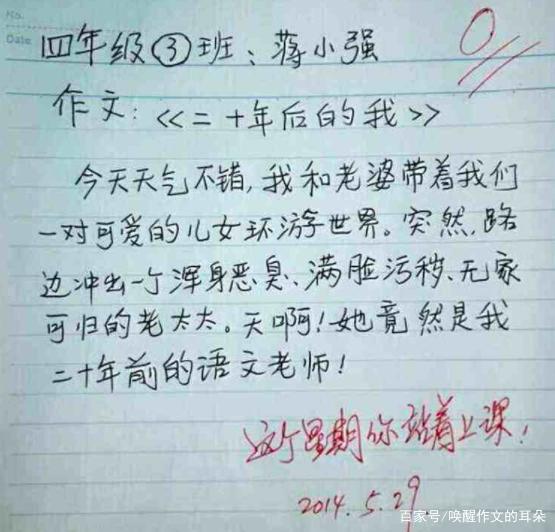 No.
Date
四年级③班：蒋小强
0
作文：<<二十年后的我>>
今天天气不错，我和老婆带着我们
一对可爱的儿女环游世界。突然，路
边冲出一个浑身恶臭、满脸污秽、无家
可归的老太太。天啊！她竟然是我
二十年前的语文老师！
这个星期你站着上课！
2014.5.29
百家号/唤醒作文的耳朵